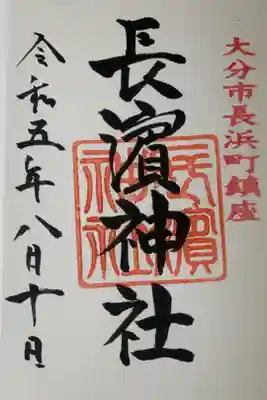 大分市長浜町鎮座
長濵神社
長濵神社
令和五年八月十日